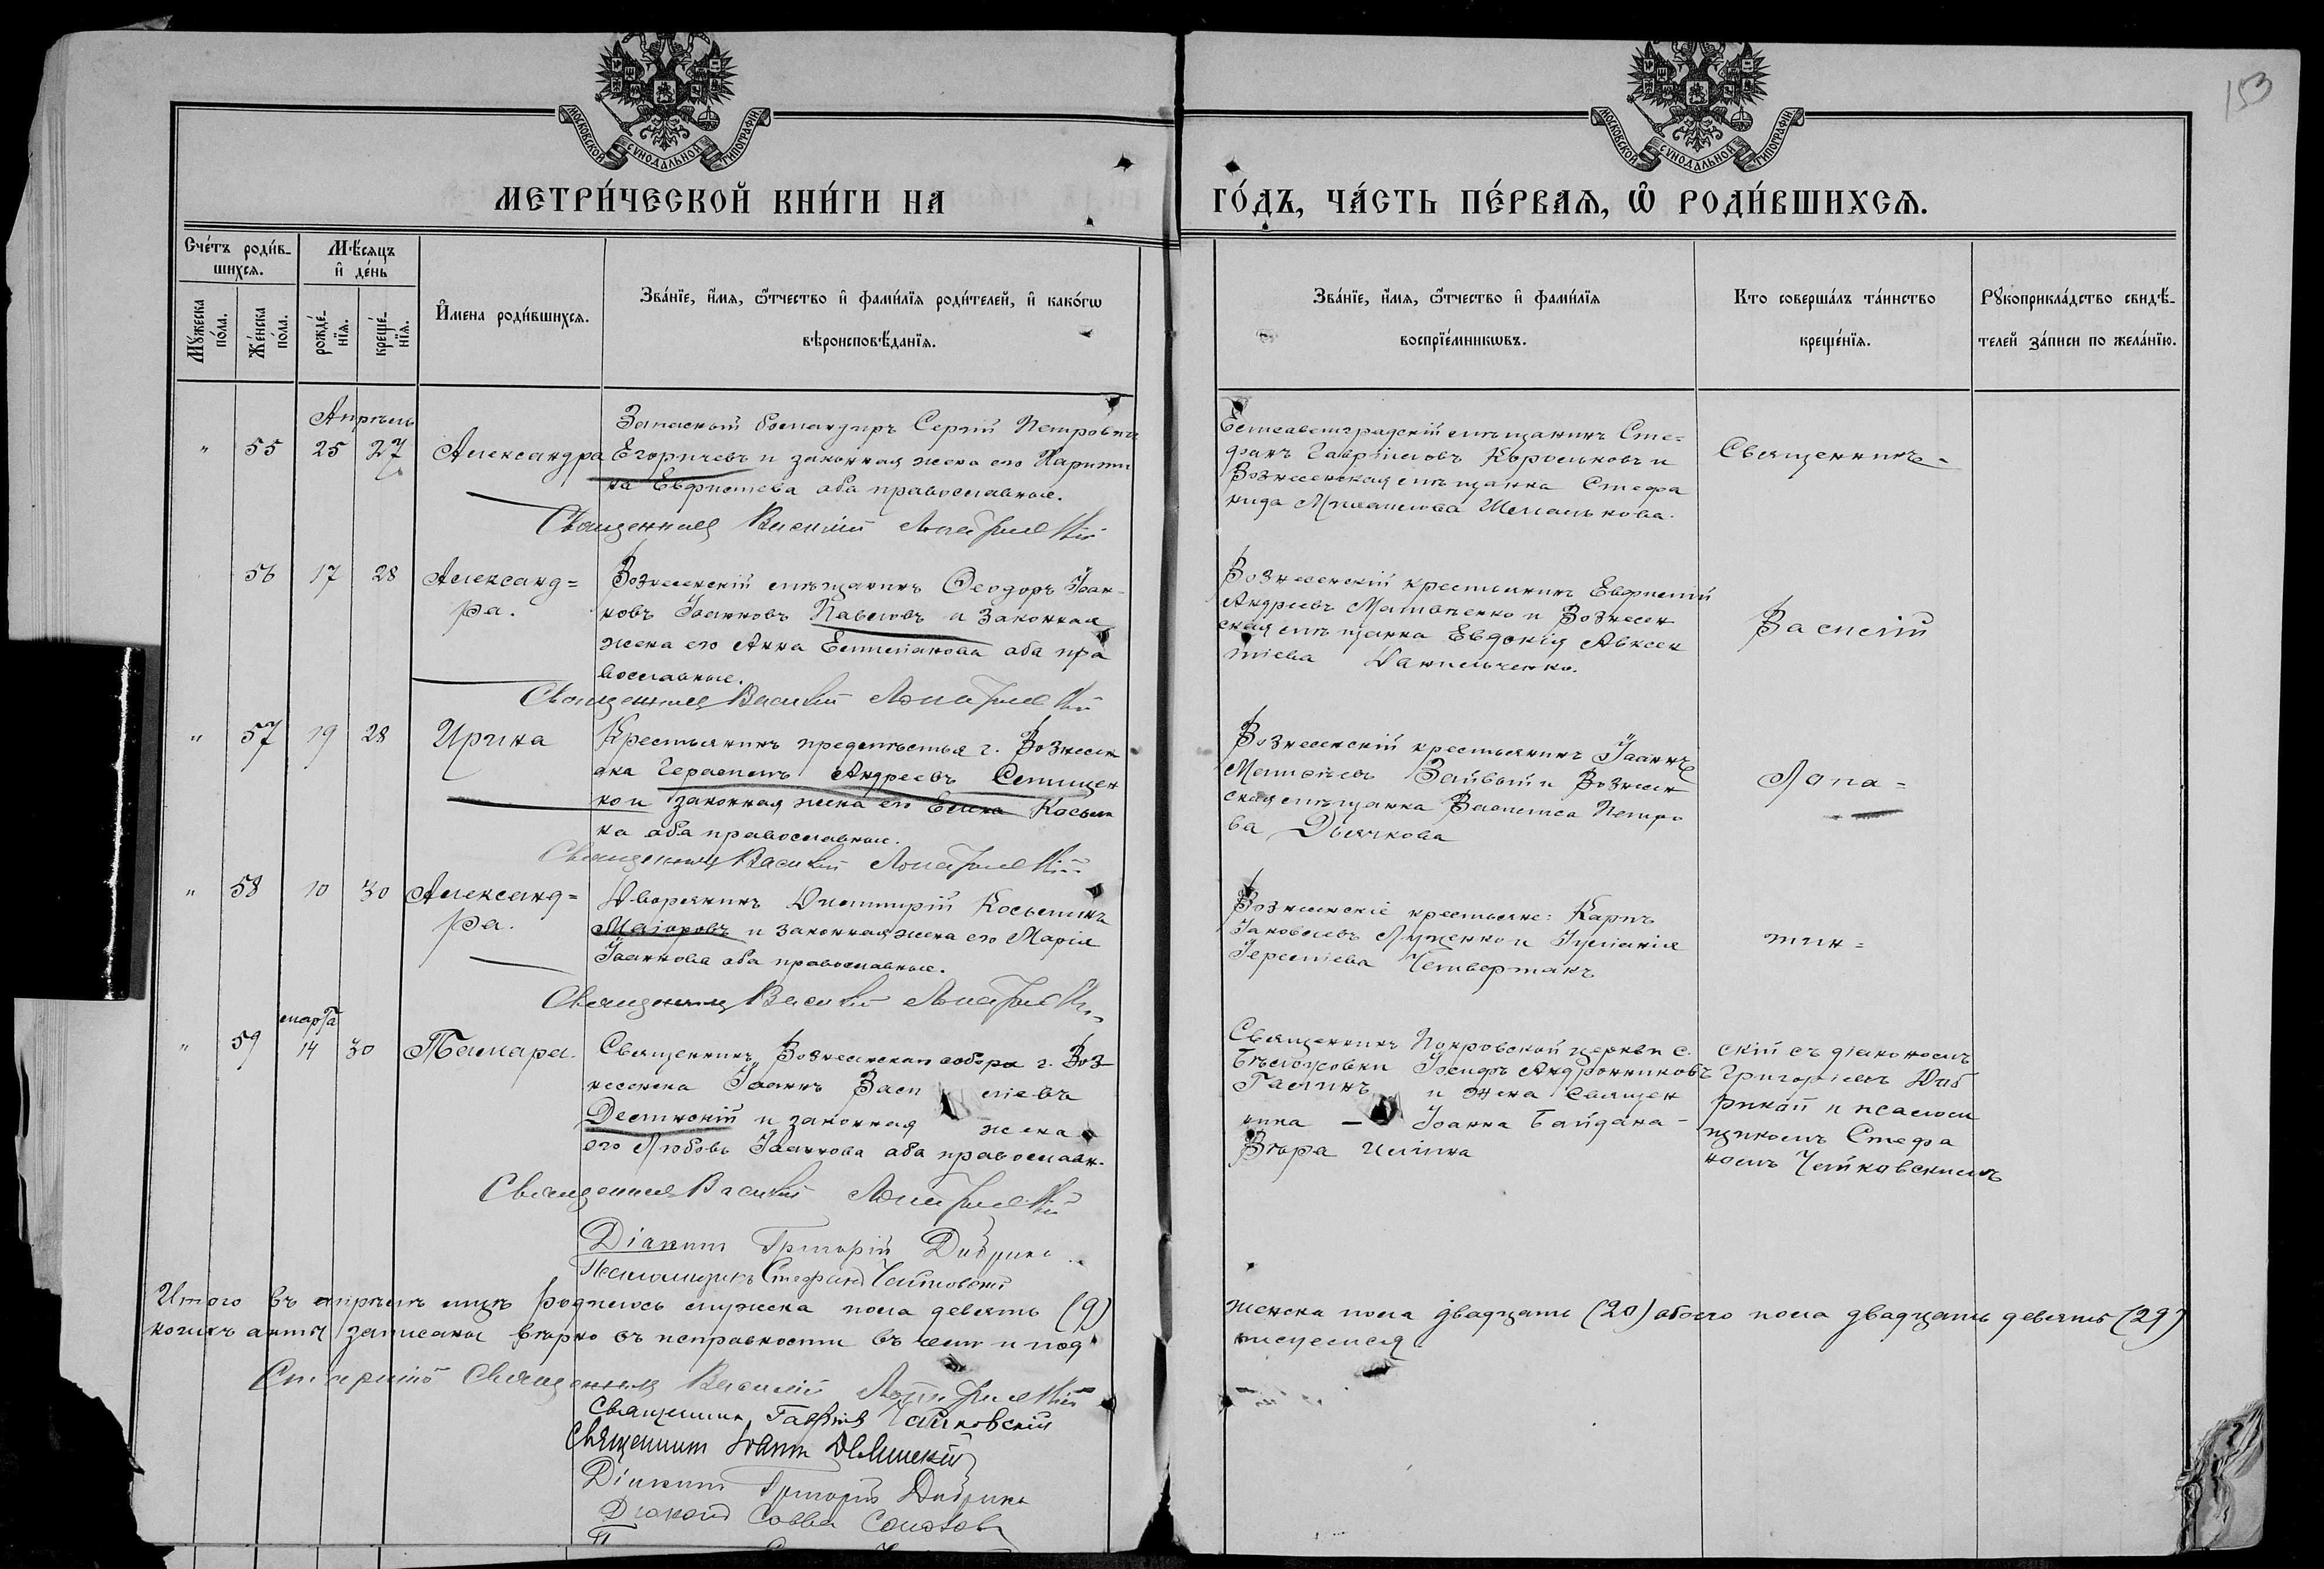 153
МОСКОВСКОЙ СУНОДАЛЬНОЙ ТИПОГРАФІИ
МОСКОВСКОЙ СУНОДАЛЬНОЙ ТИПОГРАФІИ
МЕТРИ́ЧЕСКОЙ КНИ́ГИ НА
ГО́ДЪ, ЧА́СТЬ ПЕ́РВАЯ, Ѡ҆ РОДИ́ВШИХСЯ.
Сче́тъ роди́в-
шихся.
Мѣ́сяцъ
и҆ де́нь
Мꙋ́жеска
по́ла.
Же́нска
по́ла.
рожде́-
нїя.
креще́-
нїя.
И҆мена роди́вшихся.
Зва́нїе, и҆́мя, ѻ҆́тчество и҆ фами́лїя роди́телей, и҆ како́гѡ
вѣроисповѣ́данїя.
Зва́нїе, и҆́мя, ѻ҆́тчество и҆ фами́лїя
воспрїе́мникѡвъ.
Кто соверша́лъ та́инство
креще́нїя.
Рꙋкоприкла́дство свидѣ́-
телей за́писи по жела́нїю.
Апрѣль
" 55 25 27 Александра
Запасный бомандиръ Сергій Петровичъ
Егорычевъ и законная жена его Харити
на Евфиміева оба православные.
Священникъ Василій
Елисаветградскій мѣщанинъ Сте-
фанъ Гавріиловъ Корольковъ и
Вознесенская мѣщанка Стефа
нида Михаилова
Священникъ
56 17 28 Александ=
ра.
Вознесенскій мѣщанинъ Ѳеодоръ Іоан-
новъ Іоанновъ Павловъ и законная
жена его Анна Емиліанова оба пра
вославные.
Священникъ Василій
Вознесенскій крестьянинъ Евфимій
Андреевъ Матвѣенко и Вознесен
ская мѣщанка Евдокія Авксен
тіева Данильченко.
Василій
" 57 19 28 Ирина
Крестьянинъ предмѣстья г. Вознесен
ска Герасимъ Андреевъ
ко и законная жена его Елена Косьми
на оба православные.
Священникъ Василій
Вознесенскій крестьянинъ Іоаннъ
Матѳѣевъ и Вознесен
ская мѣщанка Василиса Петро
ва Дьячкова
Лопа=
" 58 10 30 Александ=
ра.
Дворянинъ Димитрій Косьминъ
Маіоровъ и законная жена его Марія
Іоаннова оба православные.
Священникъ Василій
Вознесенскіе крестьяне: Карпъ
Іаковлевъ Луценко и Іуліанія
Терентіева Четвертакъ
тин=
марта
" 59 14 30 Тамара.
Священникъ Вознесенскаго собора г. Воз
несенска Іоаннъ Васи ліевъ
Делинскій и законная жена
его Любовь Іоаннова оба православн.
Священникъ Василій
Діаконъ Григорій
Псаломщикъ Стефанъ Чайковскій
Священникъ Покровской церкви с.
Бѣлоусовки Іосифъ Андрониковъ
и жена священ
ника — Іоанна Байдана-
Вѣра Иліина
скій съ діакономъ
Григоріемъ Диб
рикой и псалом
щикомъ Стефа
номъ Чайковскимъ
Итого въ апрѣлѣ мцѣ родилось мужеска пола девять (9)
женска пола двадцать (20) обоего пола двадцать девять (29)
коихъ акты записаны вѣрно въ исправности въ чемъ и под
писуемся
Священникъ Василій
Священникъ Гавріилъ Чайковскій
Священникъ Іоаннъ Делинскій
Діаконъ Григорій
Діаконъ Савва